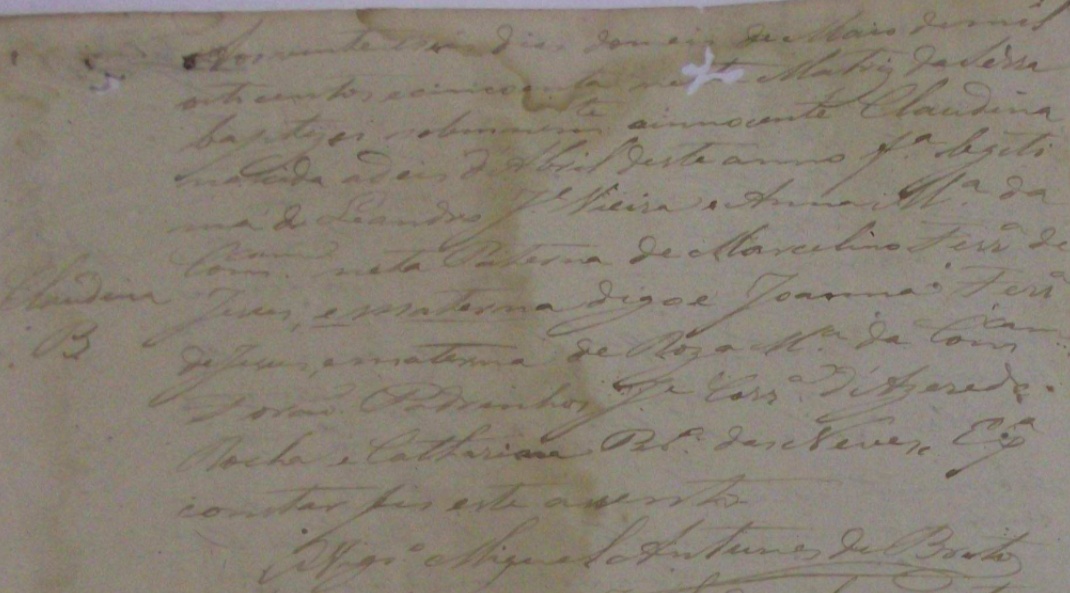 dias do mez de Maio de mil
oito centos e cincoenta nesta Matriz da Serra
baptizei solmnem.te a innocente Claudina
nascida a deis d'Abril deste anno f.a legiti
ma de Leandro J.e Vieira e Anna M.a da
Com.cam neta Paterna de Marcelino Ferr.a de
Claudina
B
Jesus, e materna digo e Joanna Ferr.a
de Jesus, e materna de Roza M.a da Com.cam
Forão Padrinhos J.e Corr.a d'Azeredo
Rocha e Catharina Per.a das Neves, E p.a
constar fis este assento
O Vigr.o Miguel Antunes de Brito